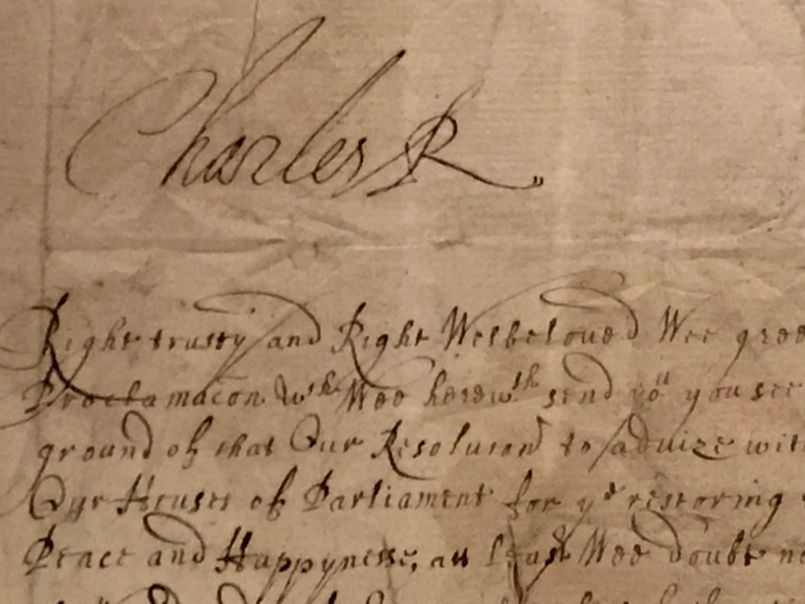 Charles R
Right trusty and Right Welbeloved Wee gree
Proclamacon wch Wee herewth send you you see
ground of that Our Resolucon to advize wit
Our Houses of Parliament for ye restoring
Peace and Happynesse, as Wee doubt no